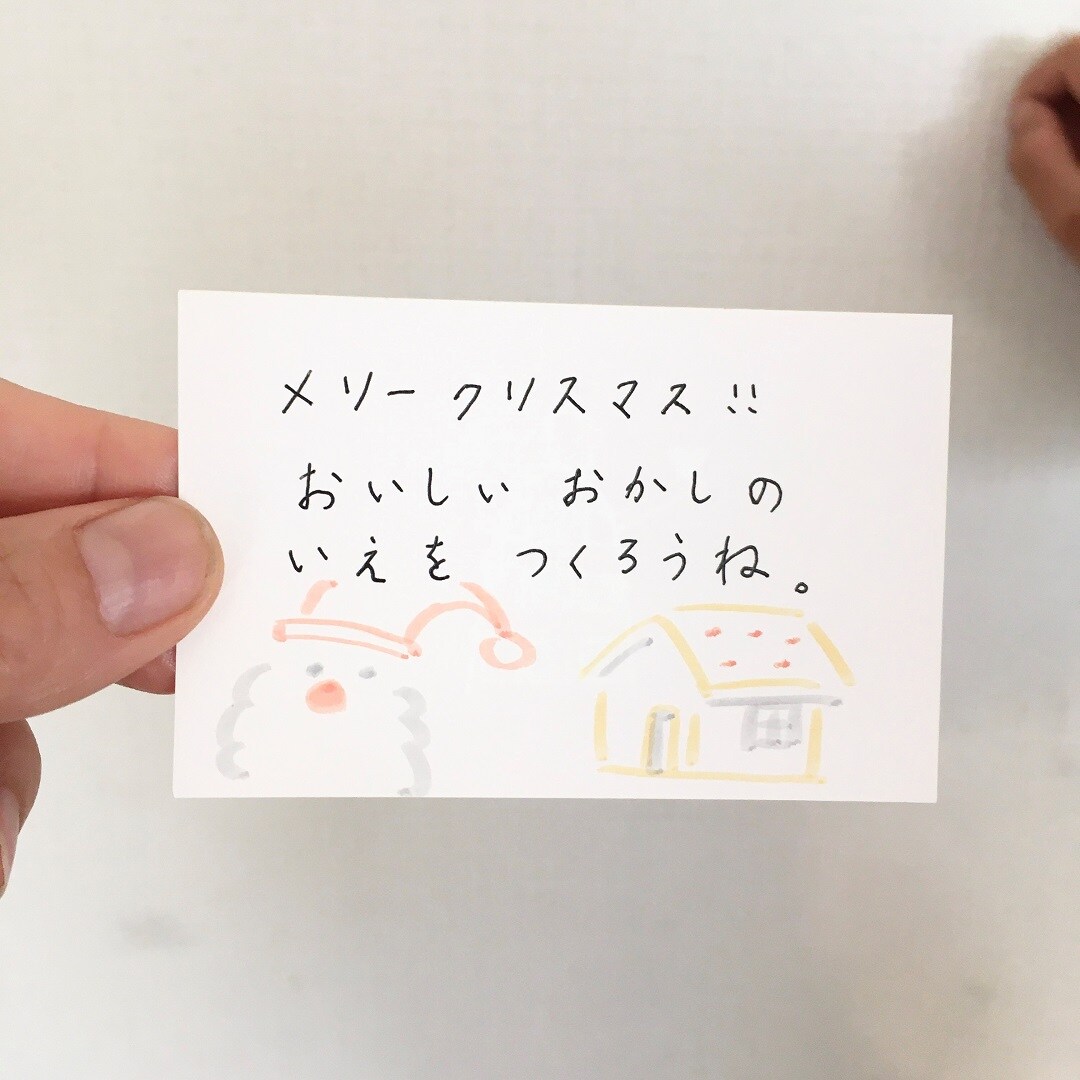 メリークリスマス!!
おいしい おかしの
いえを つくろうね。